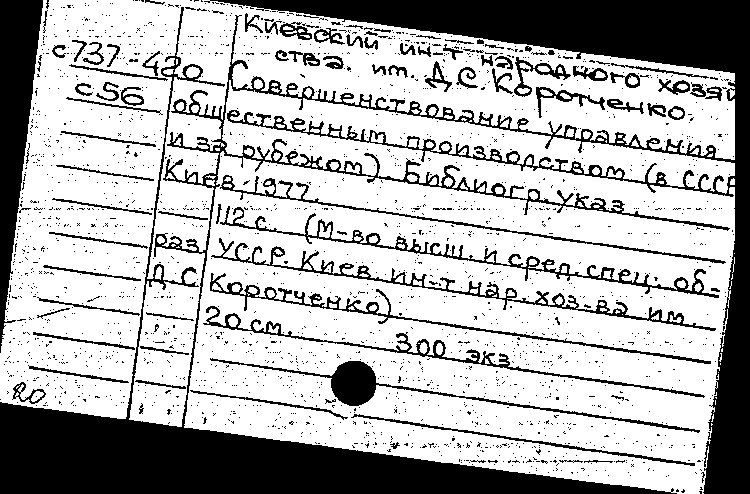 Киевский ин-т народного хозяй
ства. им. Д.С. Коротченко.
с737-420
с56
Совершенствование управления
общественным производством (в СССР
и за рубежом). Библиогр. указ.
Киев, 1977.
112 с. (М-во высш. и сред. спец. об-
раз УССР. Киев. ин-т нар. хоз-ва им.
Д.С Коротченко).
20 см. 300 экз
20